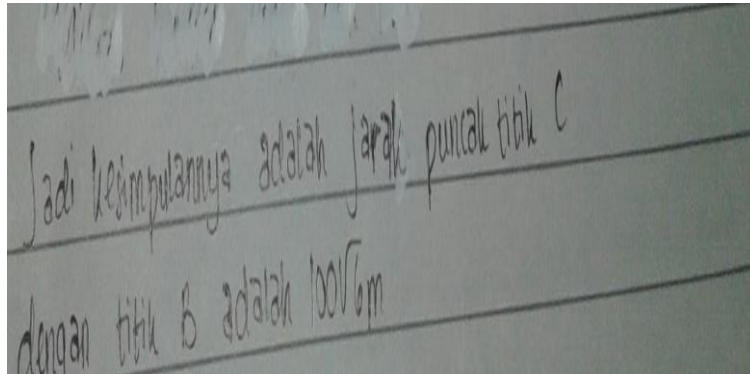 Jadi kesimpulannya adalah jarak puncak titik C
dengan titik B adalah 100√6m